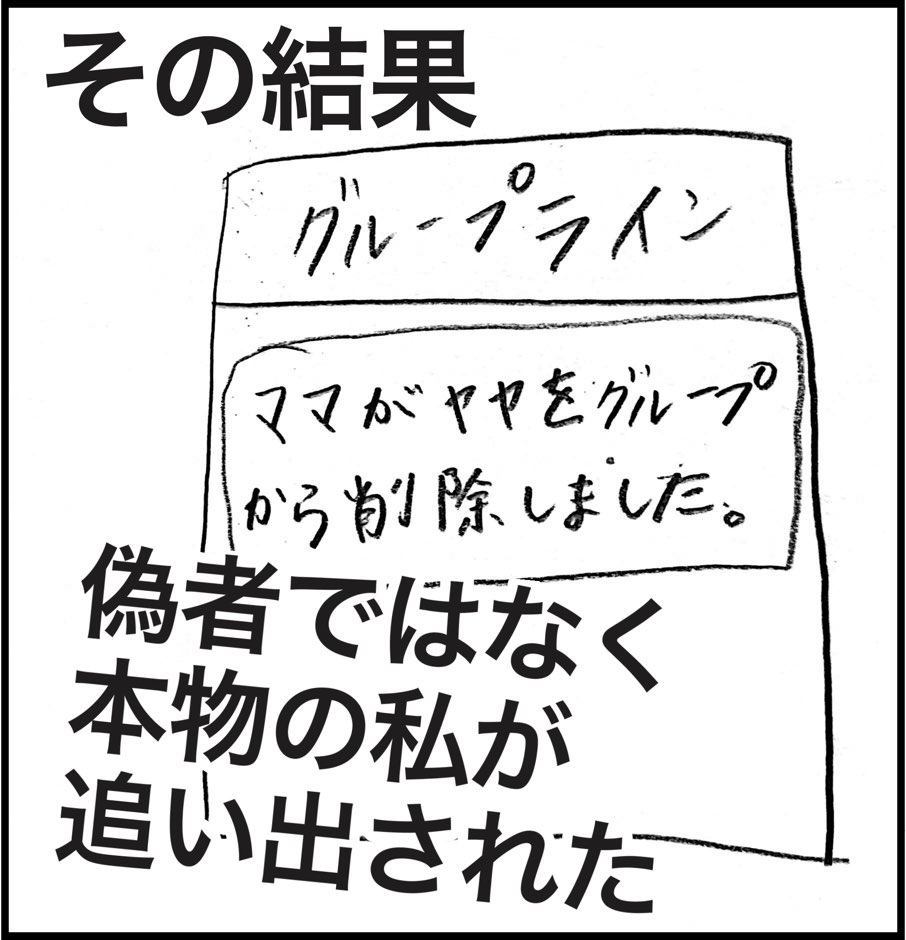 その結果
グループライン
ママがヤヤをグループ
から削除しました。
偽者ではなく
本物の私が
追い出された